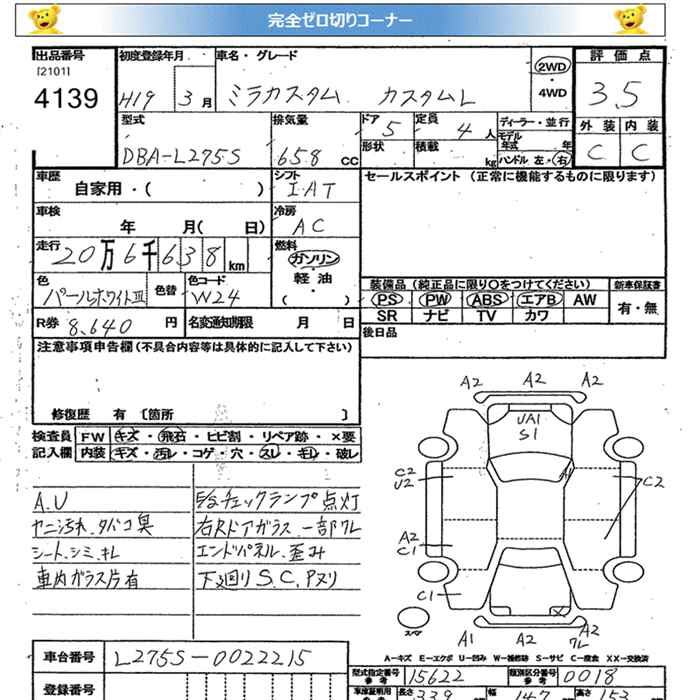 完全ゼロ切りコーナー
出品番号 初度登録年月 車名・グレード 評価点
[2101] 2WD
4139 H19 3月 ミラカスタム カスタムL ・4WD 3.5
型式 排気量 ドア 5 定員 4人 ディーラー・並行 外装 内装
モデル年式 年
DBA-L275S 658 CC 形状 積載 kg ハンドル 左・右 C C
車歴 シフト セールスポイント (正常に機能するものに限ります)
自家用・( ) IAT
車検 冷房
年 月( 日) AC
走行 燃料
20万6千638km ガソリン・
軽油・
( )
色 色替 色コード 装備品 (純正品に限り○をつけてください) 新車保証書
パールホワイトⅢ W24 PS PW ABS エアB AW 有・無
SR ナビ TV カワ
R券 8,640円 名変通知期限 月 日 後日品
注意事項申告欄(不具合内容等は具体的に記入して下さい)
修復歴 有 [箇所 ]
検査員 FW キズ・飛石・ヒビ割・リペア跡・×要
記入欄 内装 キズ・汚レ・コゲ・穴・スレ・キレ・破レ
A.U
ヤニ汚れ.タバコ臭
シート.シミ.キレ
車内ガラス片有
チェックランプ点灯
右Rドアガラス一部ワレ
エンドパネル.歪み
下廻りS.C.Pヌリ
A2 A2 A2
UA1
S1
C2
U2
C2
A2
C1
C1
スペア
A1 A2 U2
ワレ
A-キズ E-エクボ U-凹み W-補修跡 S-サビ C-腐食 XX-交換済
車台番号 L275S-0022215
型式指定番号 参考 15622 類別区分番号 参考 0018
登録番号
車庫証明用 参考 長さ 339 幅 147 高さ 153